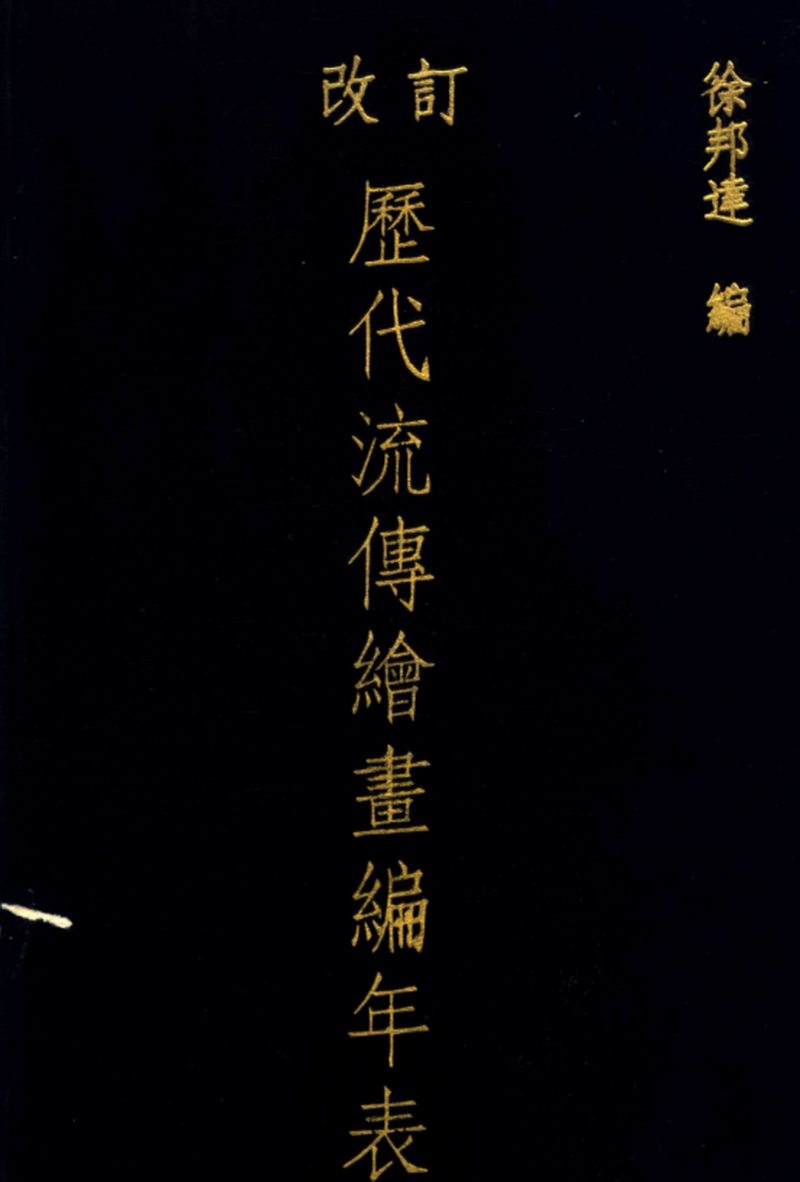 徐邦達 編
改訂
歷代流傳繪畫編年表